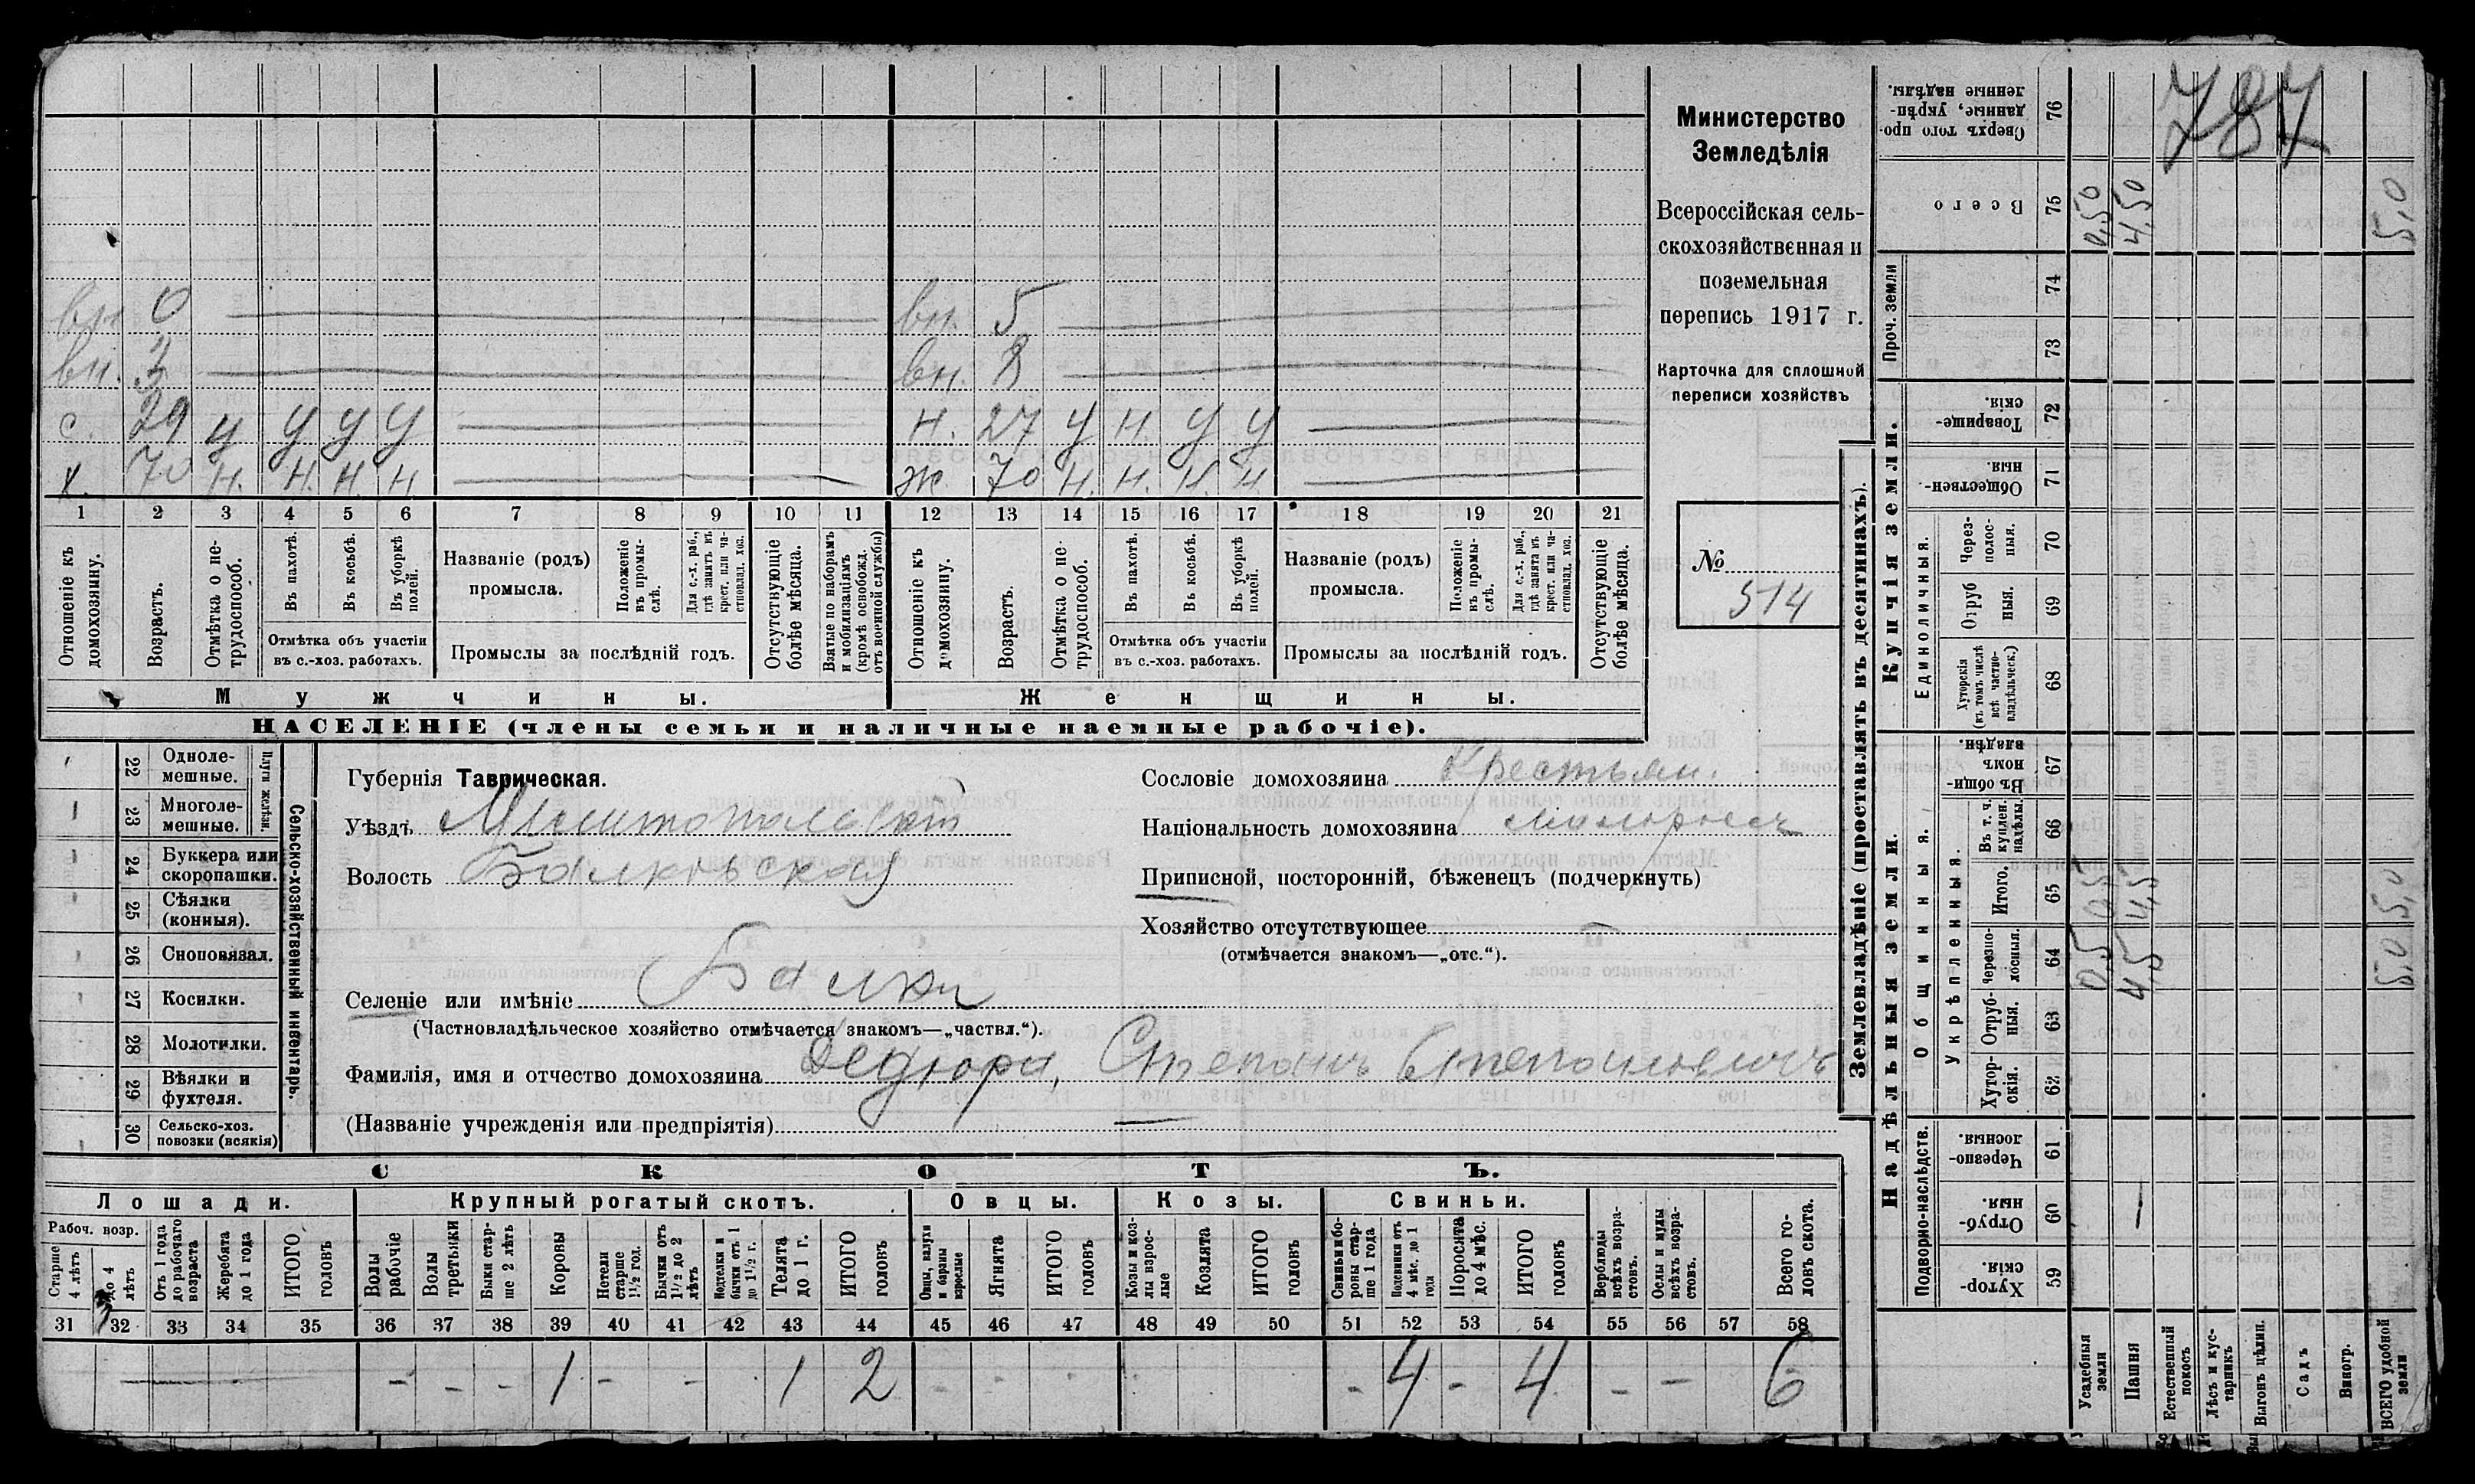 вн. 0 вн. 5
вн. 3 вн. 8
с. 29 у у у у н. 27 у н. у у
х. 70 н. н. н. н ж. 70 н. н. н. н
1 2 3 4 5 6 7 8 9 10 11 12 13 14 15 16 17 18 19 20 21
Отношеніе къ домохозяину.
Возрастъ.
Отмѣтка о нетрудоспособ.
Въ пахотѣ.
Въ косьбѣ.
Въ уборкѣ полей.
Отмѣтка объ участіи
въ с.-хоз. работахъ.
Названіе (родъ)
промысла.
Положеніе въ промыслѣ.
Для с.-х. раб., гдѣ занятъ въ крест. или частновлад. хоз.
Промыслы за послѣдній годъ.
Отсутствующіе болѣе мѣсяца.
Взятые по наборамъ и мобилизаціямъ (кромѣ освобожд. отъ военной службы)
Отношеніе къ домохозяину.
Возрастъ.
Отмѣтка о нетрудоспособ.
Въ пахотѣ.
Въ косьбѣ.
Въ уборкѣ полей.
Отмѣтка объ участіи
въ с.-хоз. работахъ.
Названіе (родъ)
промысла.
Положеніе въ промыслѣ.
Для с.-х. раб., гдѣ занята въ крест. или частновлад. хоз.
Промыслы за послѣдній годъ.
Отсутствующіе болѣе мѣсяца.
Мужчины. Женщины.
НАСЕЛЕНІЕ (члены семьи и наличные наемные рабочіе).
Министерство
Земледѣлія
Всероссійская сель-
скохозяйственная и
поземельная
перепись 1917 г.
Карточка для сплошной
переписи хозяйствъ
№
514
22 Одноле-
мешные.
23 Многоле-
мешные.
Плуги желѣзн.
24 Буккера или
скоропашки.
25 Сѣялки
(конныя).
26 Сноповязал.
27 Косилки.
28 Молотилки.
29 Вѣялки и
фухтеля.
30 Сельско-хоз.
повозки (всякія)
Сельско-хозяйственный инвентарь.
Губернія Таврическая.
Уѣздъ Мелитопольскій
Волость Балковская
Селеніе или имѣніе Балки
(Частновладѣльческое хозяйство отмѣчается знакомъ—„частвл.“).
Фамилія, имя и отчество домохозяина Дедюра, Степанъ Степановичъ
(Названіе учрежденія или предпріятія) —
Сословіе домохозяина Крестьян.
Національность домохозяина малоросъ
Приписной, посторонній, бѣженецъ (подчеркнуть)
Хозяйство отсутствующее
(отмѣчается знакомъ—„отс.“).
СКОТЪ.
Лошади. Крупный рогатый скотъ. Овцы. Козы. Свиньи.
Рабоч. возр.
Старше 4 лѣтъ
до 4 лѣтъ
Отъ 1 года до рабочаго возраста
Жеребята до 1 года
ИТОГО головъ
Волы рабочіе
Волы третьяки
Быки старше 2 лѣтъ
Коровы
Нетели старше 1½ год.
Бычки отъ 1½ до 2 лѣтъ
Подтелки и бычки отъ 1 до 1½ г.
Телята до 1 г.
ИТОГО головъ
Овцы, валухи и бараны взрослые
Ягнята
ИТОГО головъ
Козы и козлы взрослые
Козлята
ИТОГО головъ
Свиньи и боровы старше 1 года
Подсвинки отъ 4 мѣс. до 1 года
Поросята до 4 мѣс.
ИТОГО головъ
Верблюды всѣхъ возрастовъ.
Ослы и мулы всѣхъ возрастовъ.
Всего головъ скота.
31 32 33 34 35 36 37 38 39 40 41 42 43 44 45 46 47 48 49 50 51 52 53 54 55 56 57 58
— - - - 1 - - 1 2 - - - - 4 - 4 - - 6
Землевладѣніе (проставлять въ десятинахъ).
787
Сверхъ того проданные, укрѣпленные надѣлы. 76
Всего 75 0,50 4,50 5,0
Проч. земли
74
73
Купчія земли.
Товарищескія. 72
Общественныя. 71
Единоличныя.
Черезполосныя. 70
Отрубныя. 69
Хуторскія (въ томъ числѣ всѣ частновладѣльческ.) 68
Надѣльныя земли.
Общинныя.
Въ общинномъ владѣн. 67
Укрѣпленныя.
Въ т. ч. куплен. надѣлы. 66
Итого. 65 0,5 4,5 5,0
Черезполосныя. 64 0,5 4,5 5,0
Отрубныя. 63
Хуторскія. 62
Подворно-наслѣдств.
Черезполосныя. 61
Отрубныя. 60 —
Хуторскія. 59
Усадебныя земли
Пашня
Естественный покосъ
Лѣсъ и кустарникъ
Выгонъ цѣлин.
Садъ
Виногр.
ВСЕГО удобной земли